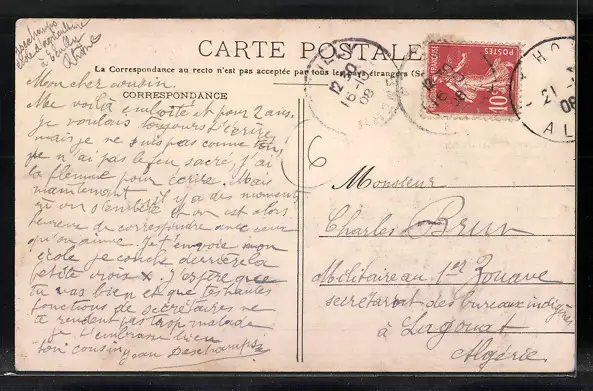 Deschamps
élève d'agriculture
à Ecully
Rhône
CARTE POSTALE
La Correspondance au recto n'est pas acceptée par tous les pays étrangers (Se
CORRESPONDANCE
Mon cher cousin.
Me voilà emboîté et pour 2 ans.
Je voulais toujours t'écrire
mais je ne suis pas comme toi,
je n'ai pas le feu sacré, j'ai
la flemme pour écrire. Mais
maintenant il y a des moments
où on s'embête et on est alors
heureux de correspondre avec ceux
qu'on aime. Je t'envoie mon
école je couche derrière la
petite croix x. J'espère que
tu vas bien et que tes hautes
fonctions de secrétaires ne
te rendent pas trop malade
Je t'embrasse bien
ton cousin Jean Deschamps
POSTES
10
12-30
16
08
21
08
Monsieur
Charles Brun
Militaire au 1er Zouave
secrétariat des bureaux indigènes
à Lagouat
Algérie